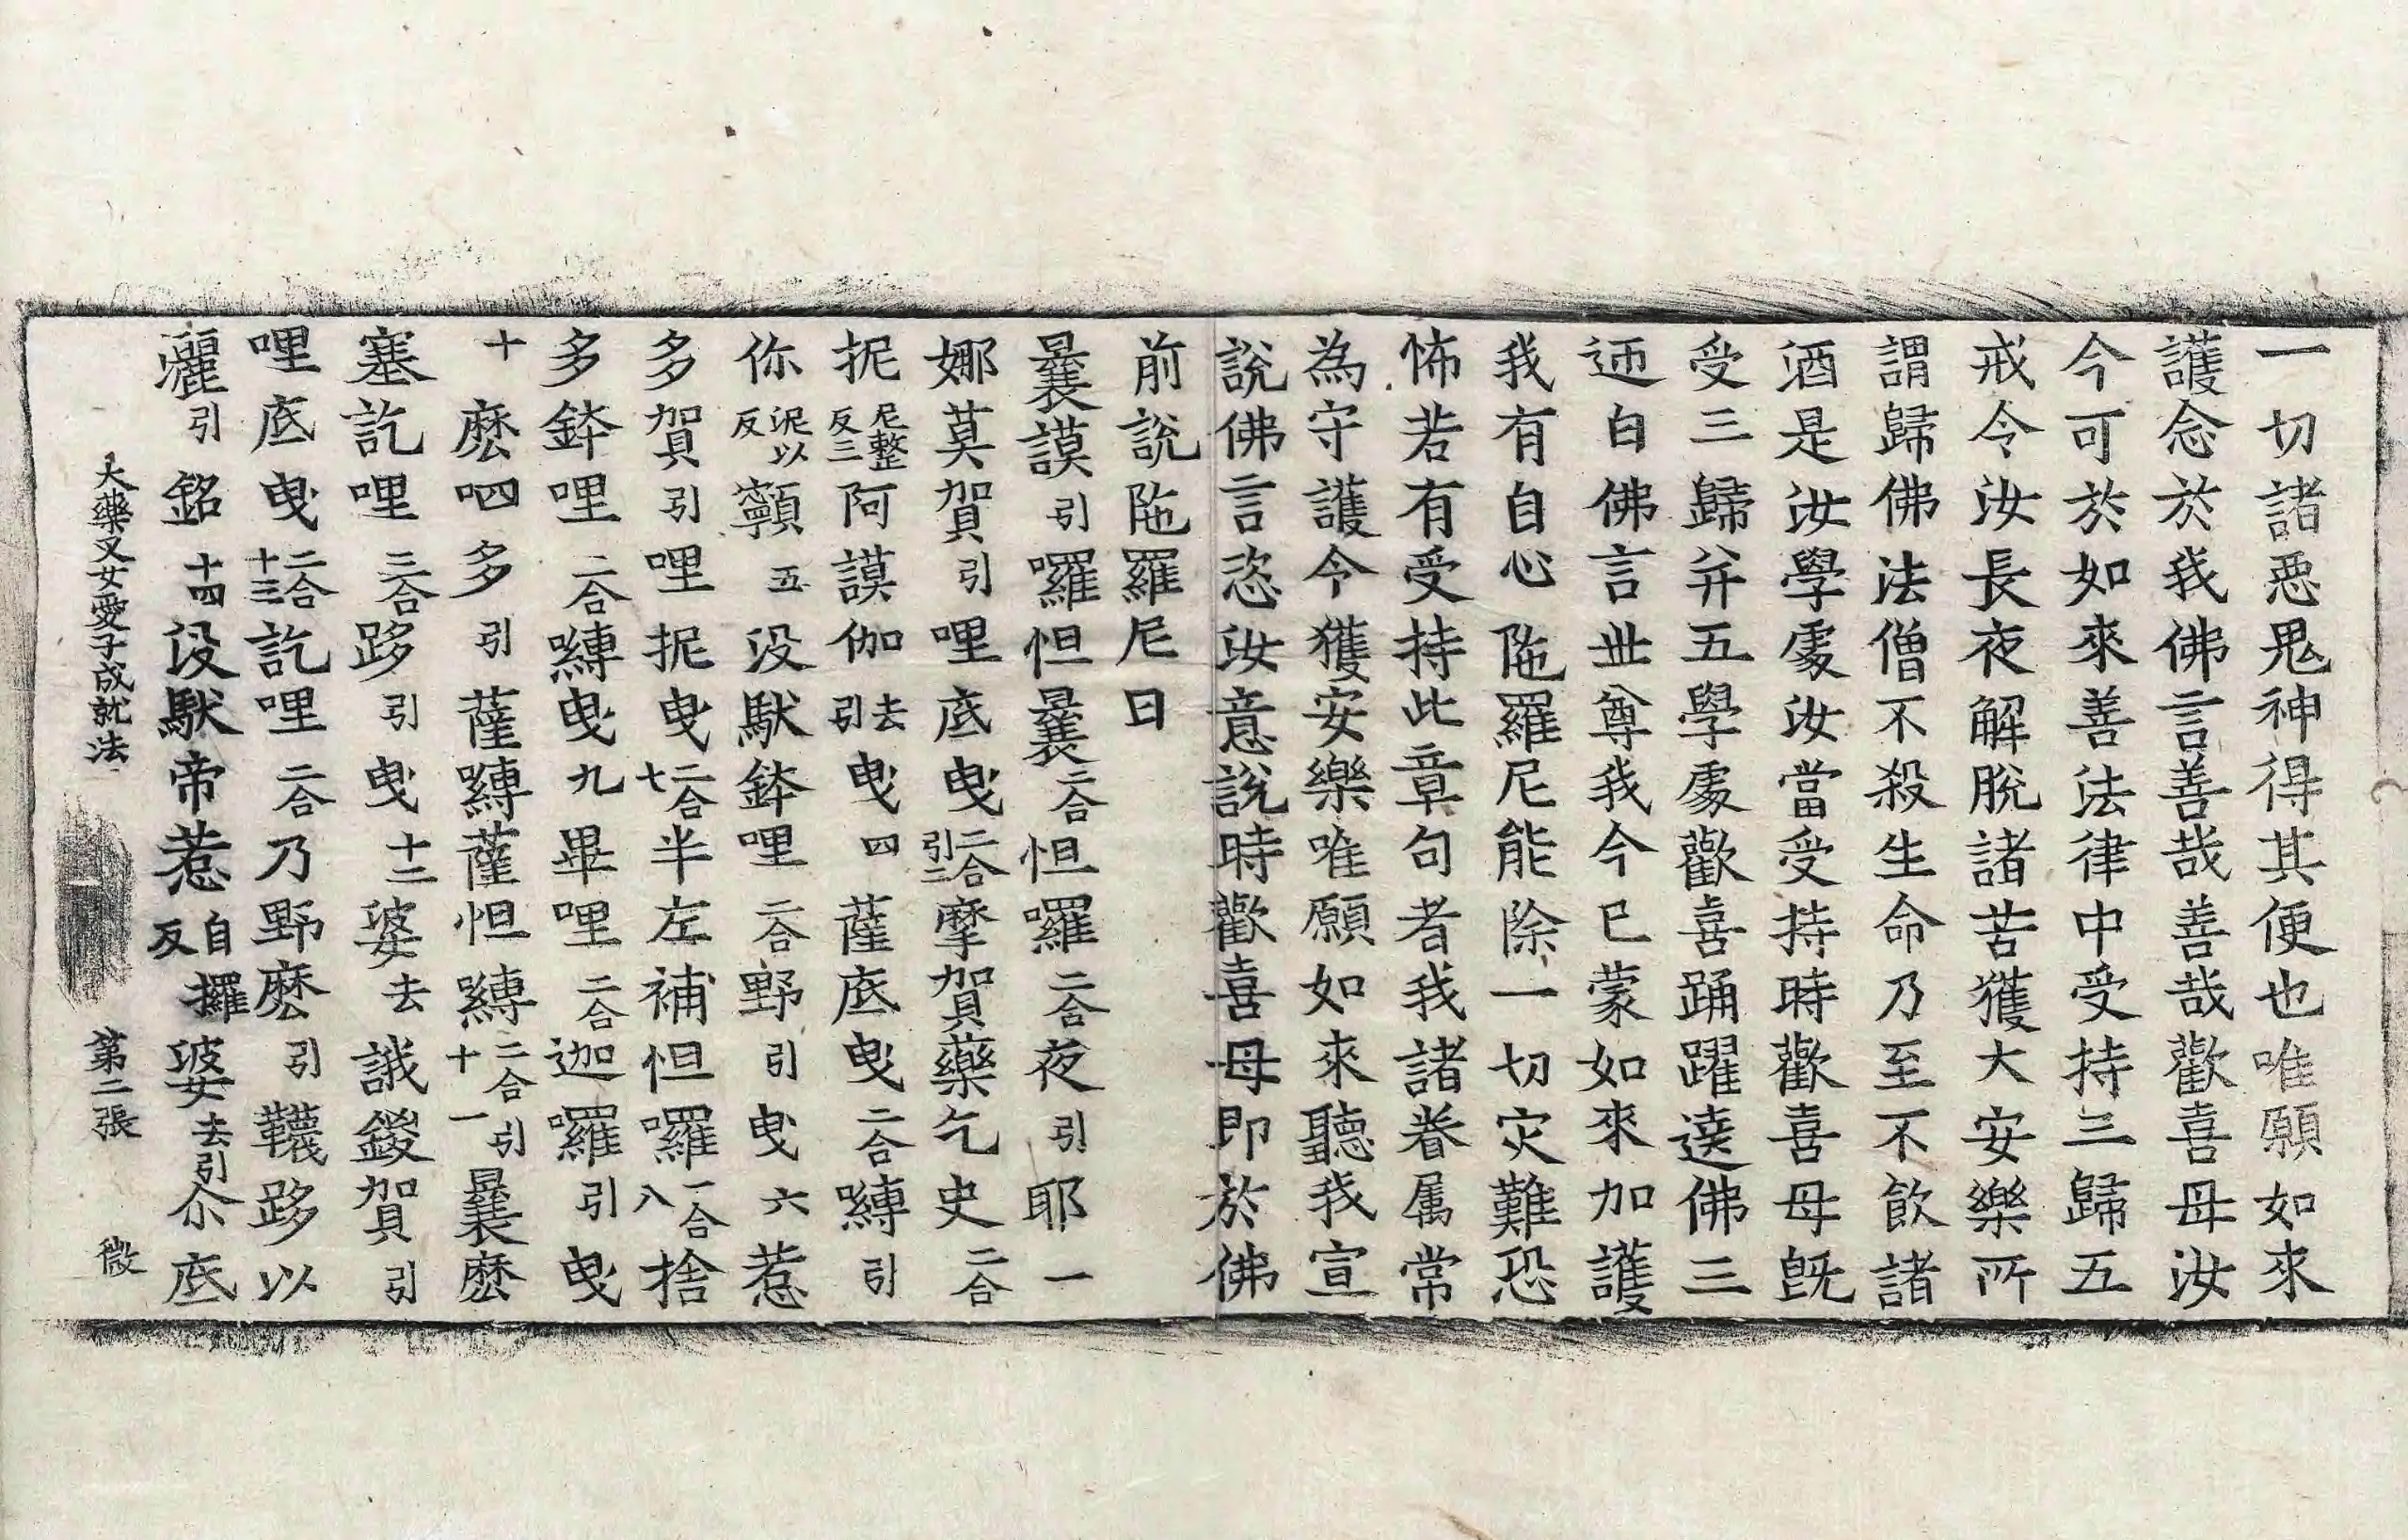 一切諸惡鬼神得其便也唯願如來
護念於我佛言善哉善哉歡喜母汝
今可於如來善法律中受持三歸五
戒令汝長夜解脫諸苦獲大安樂所
謂歸佛法僧不殺生命乃至不飲諸
酒是汝學處汝當受持時歡喜母既
受三歸并五學處歡喜踊躍遶佛三
迊白佛言世尊我今已蒙如來加護
我有自心陁羅尼能除一切灾難恐
怖若有受持此章句者我諸眷属常
為守護令獲安樂唯願如來聽我宣
說佛言恣汝意說時歡喜母即於佛
前說陁羅尼曰
曩謨引囉怛曩二合怛囉二合夜引耶一
娜莫賀引哩底曳二合引二摩賀藥乞史二合
抳尼整反三阿謨伽去引曳四薩底曳二合嚩引
你泥以反顙五没馱鉢哩二合野引曳六惹
多賀引哩抳曳二合七半左補怛囉二合八捨
多鉢哩二合嚩曳九畢哩二合迦囉引曳
十麽呬多引薩嚩薩怛嚩二合引十一曩麽
塞訖哩三合跢引曳十二婆去誐鑁賀引
哩底曳二合十三訖哩二合乃野麽引韈跢以
灑引銘十四没馱帝惹自反攞婆去引尒底
大藥叉女愛子成就法 第二張 微